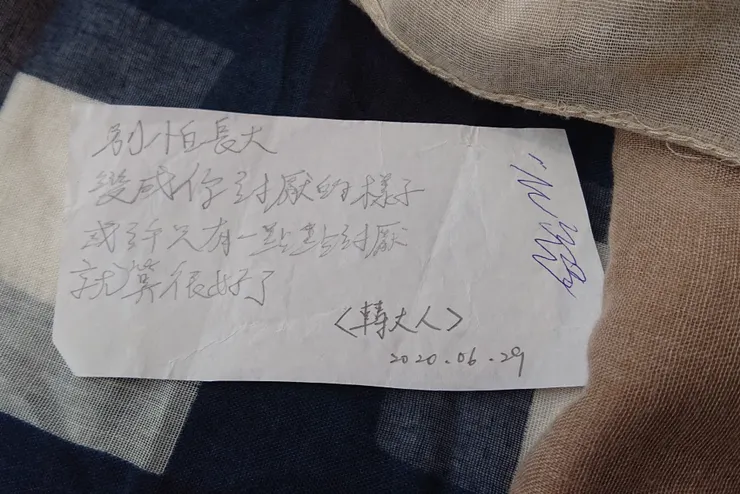 別怕長大
變成你討厭的樣子
或許只有一點點討厭
就算很好了
〈轉大人〉
2020.06.29